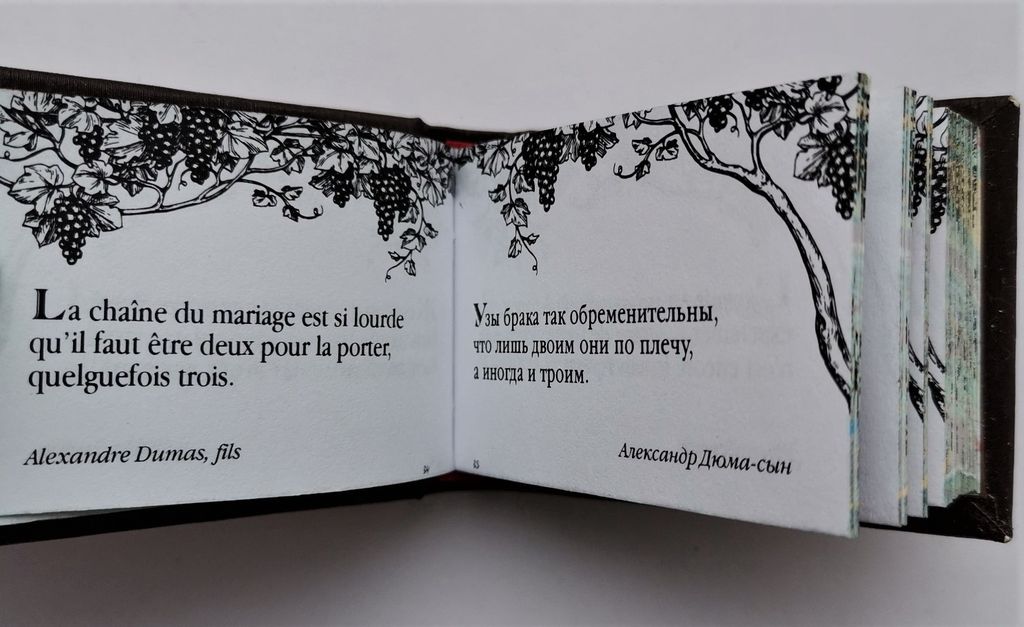 La chaîne du mariage est si lourde
qu'il faut être deux pour la porter,
quelguefois trois.
Alexandre Dumas, fils
84
Узы брака так обременительны,
что лишь двоим они по плечу,
а иногда и троим.
Александр Дюма-сын
85